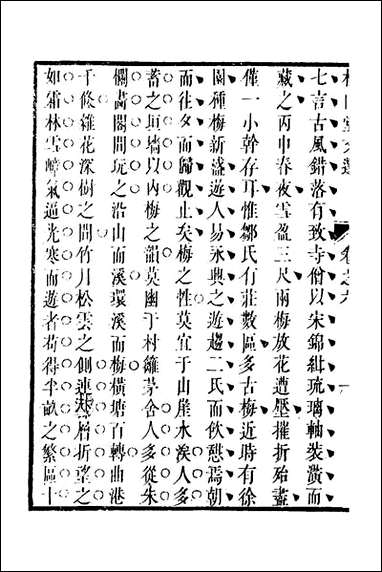 七言古風錯落有致寺僧以宋錦緝琉璃軸裝潢而
藏之丙申春夜雪盈三尺兩梅放花遭壓摧折殆盡
僅一小幹存耳惟鄒氏有莊數區多古梅近時有徐
園種梅新盛遊人易永興之遊趨二氏而飲憇焉朝
而往夕而歸觀止矣梅之性莫宜于山崖水涘人多
蓄之垣墻以內梅之韻莫幽于村籬茅舍人多從朱
欄畵閣間玩之沿山而溪環溪而梅橫塘百轉曲港
千條雜花深樹之間竹月松雲之側連稜層折望之
如霜林雪嶂氣逼光寒而遊者苟得半畝之繁區十